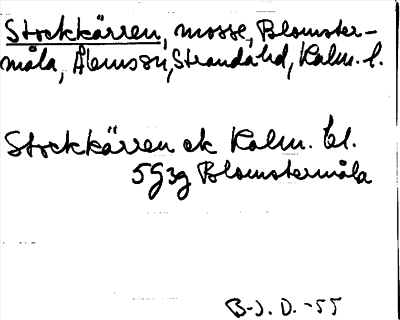 Stockkärren, mosse, Blomster-
måla, Ålemssn, Strandahd, Kalm. l.
Stockkärren ek Kalm. bl.
5G3g Blomstermåla
B-J. D. -55